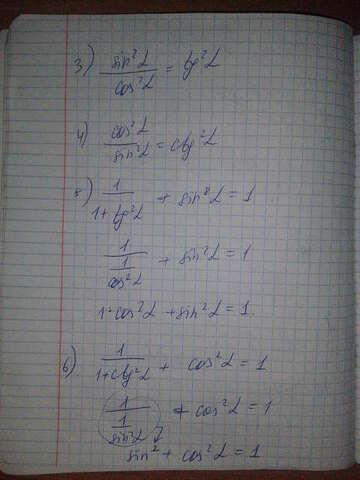 3) sin²α / cos²α = tg²α
4) cos²α / sin²α = ctg²α
5) 1 / (1+tg²α) + sin²α = 1
1 / (1 / cos²α) + sin²α = 1
1·cos²α + sin²α = 1
6) 1 / (1+ctg²α) + cos²α = 1
1 / (1 / sin²α) + cos²α = 1
sin² + cos²α = 1